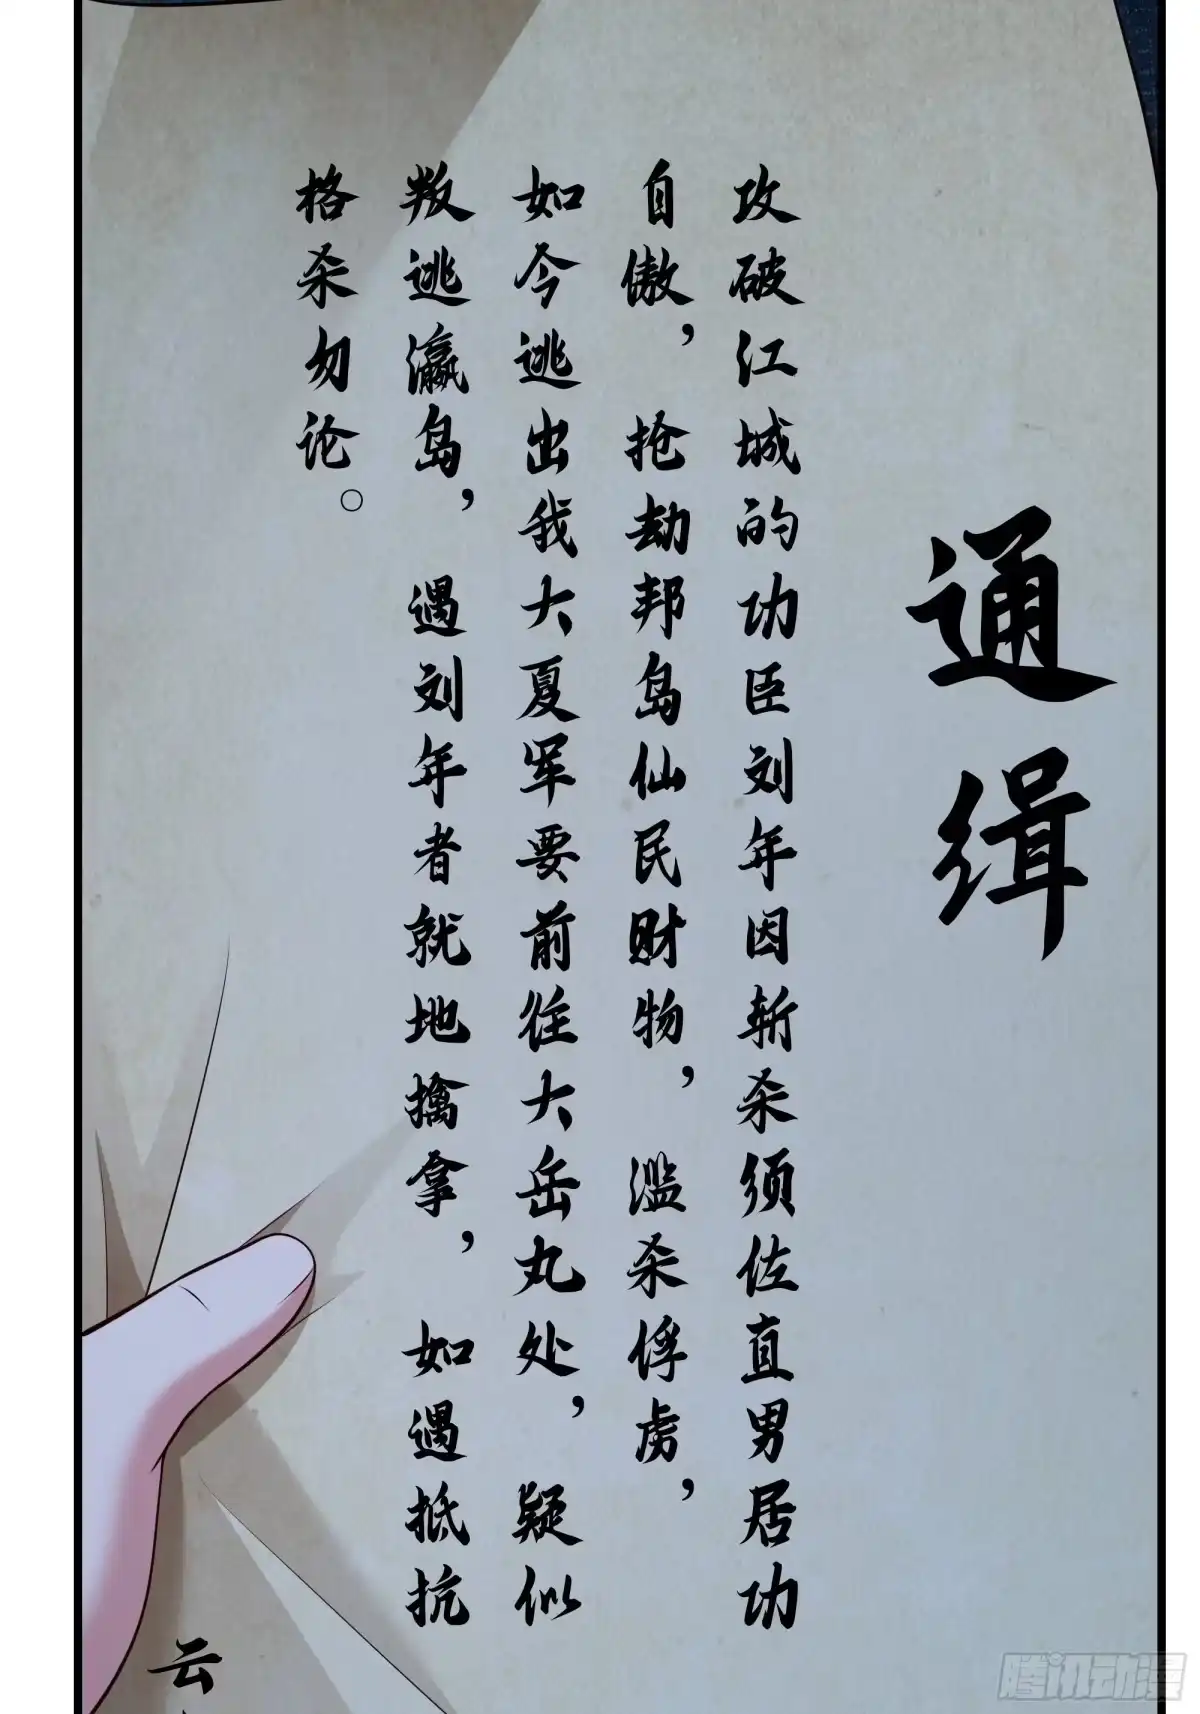 通缉
攻破江城的功臣刘年因斩杀须佐直男居功
自傲，抢劫邦岛仙民财物，滥杀俘虏，
如今逃出我大夏军要前往大岳丸处，疑似
叛逃瀛岛，遇刘年者就地擒拿，如遇抵抗
格杀勿论。
云
腾讯动漫